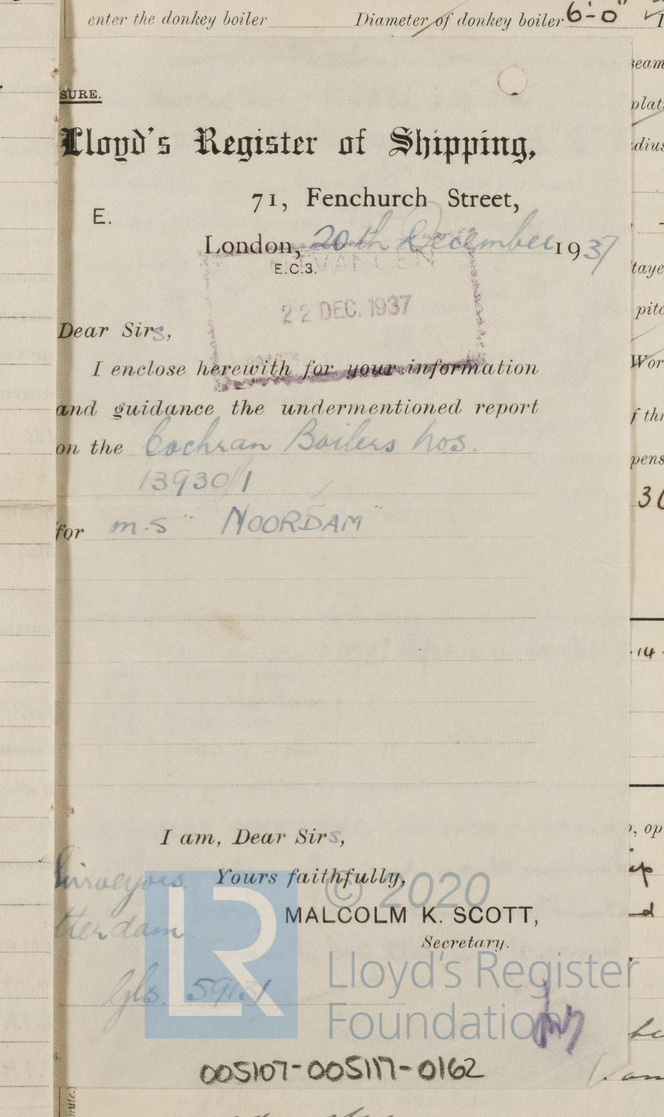 enter the donkey boiler Diameter of donkey boiler 6'-0"
SURE.
Lloyd's Register of Shipping,
71, Fenchurch Street,
E.
London, 20th December 1937
E.C.3.
22 DEC. 1937
Dear Sirs,
I enclose herewith for your information
and guidance the undermentioned report
on the Cochran Boilers Nos.
13930/1
for m.s "NOORDAM"
I am, Dear Sirs,
Surveyors, Yours faithfully,
© 2020
MALCOLM K. SCOTT,
tterdam
Secretary.
LR
Lloyd's Register
Foundation
Gls. 59131
005107-005117-0162